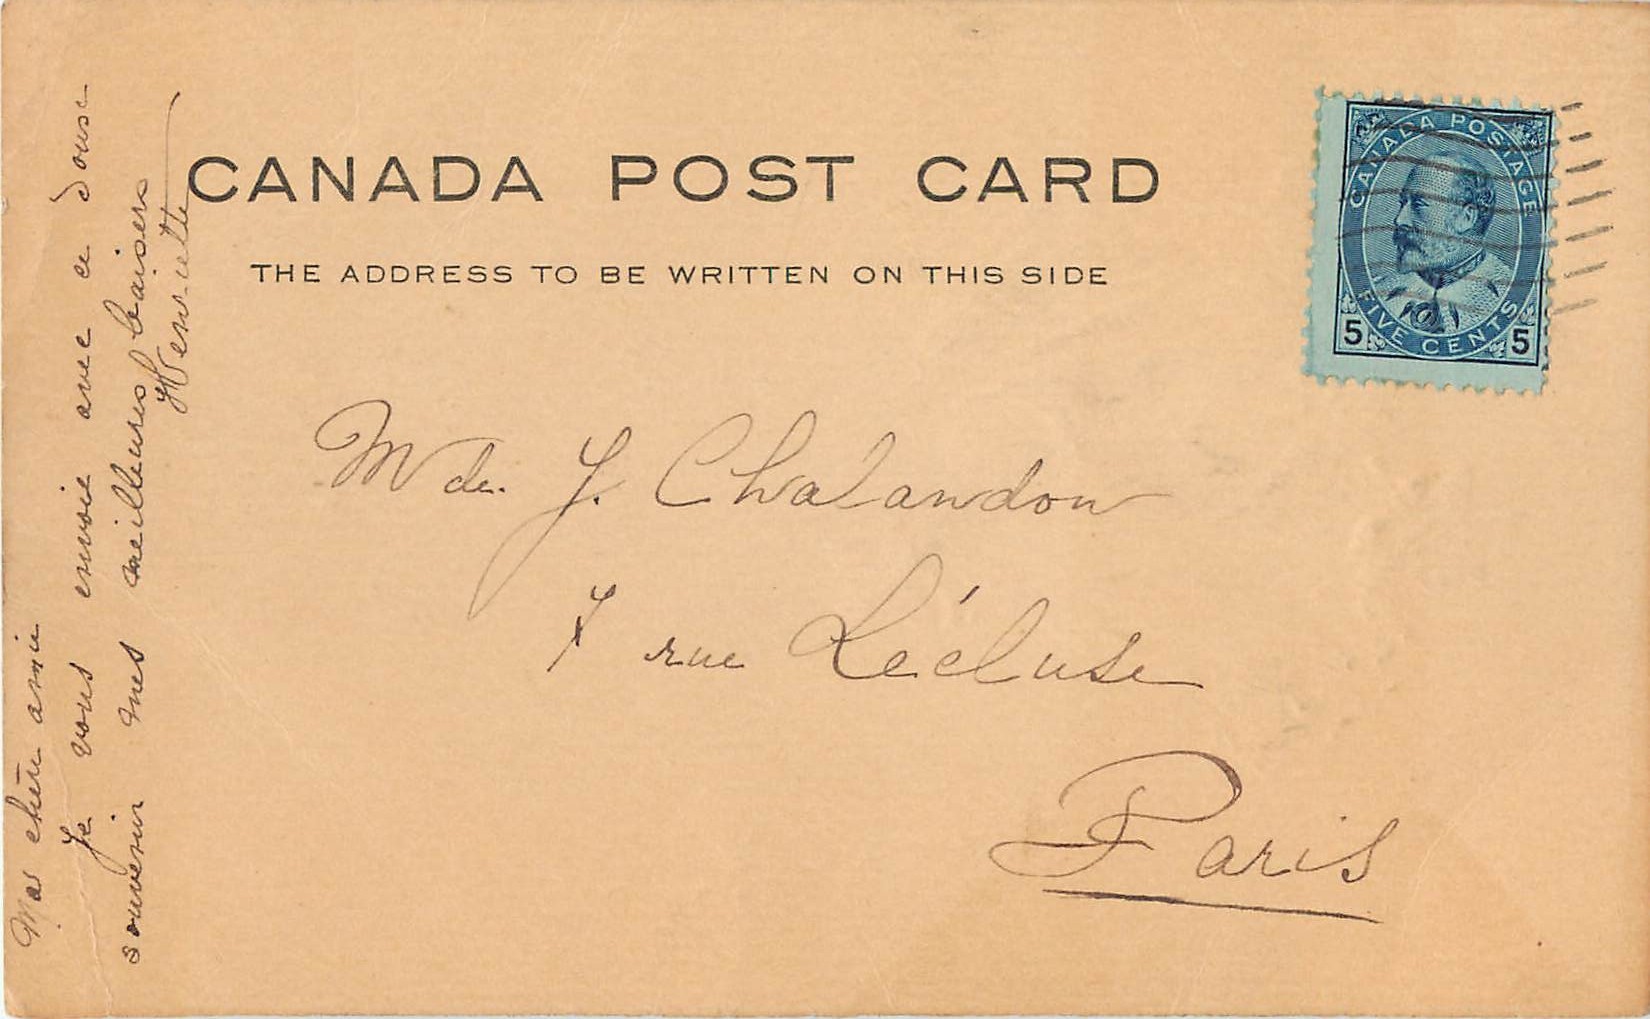 CANADA POST CARD
THE ADDRESS TO BE WRITTEN ON THIS SIDE
CANADA POSTAGE
FIVE CENTS
5 5
Mde. J. Chalandon
7 rue Lécluse
Paris
Ma chère amie
Je vous envoie avec ce doux
souvenir mes meilleures baisers
Henriette